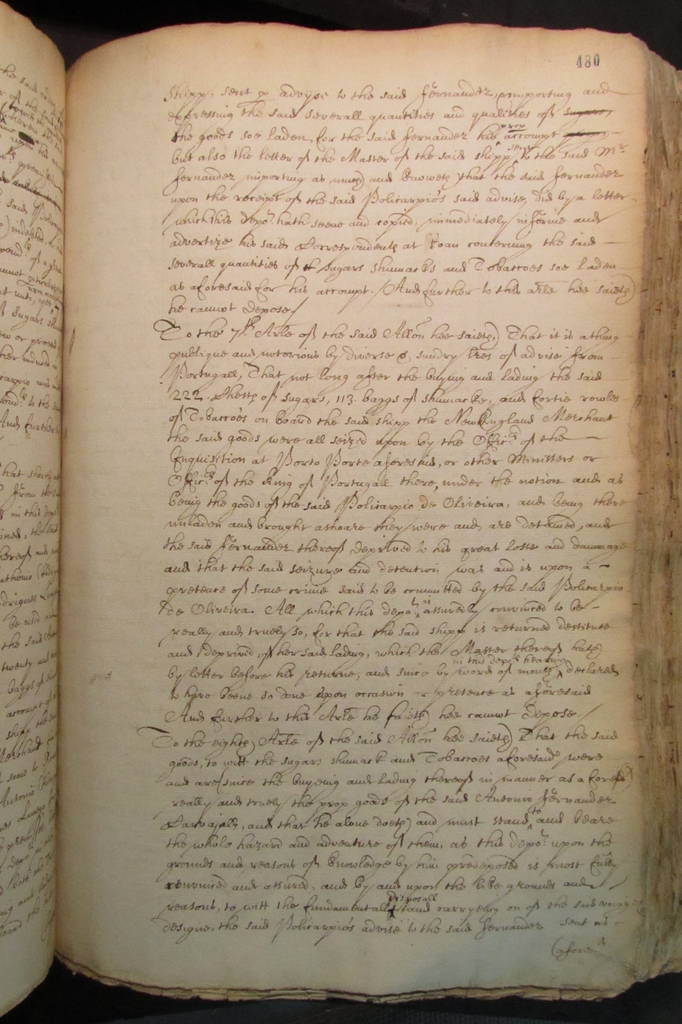 480
shipp, sent &c advise to the said Fernandez, importing and
expressing the said severall quantities and qualities of sugars,
the goods soe laden, for the said Fernandez his prop accompt
but also the letter of the Master of the said shipp to the said Mr
Fernandez importing as much and knoweth that the said Fernandez
upon the receipt of the said Policarpio's said advise, did by a letter
which this depot hath seene and copied, immediately informe and
advertize his said Correspondents at Roan concerning the said
severall quantities of sugars shumacks and Tobaccoes soe laden
as aforesaid for his accompt. And further to this arle hee saieth
he cannot depose/
To the 7th Arle of the said Allon hee saieth, That it is a thing
publique and notorious by diverse & sundry lres of advise from
Portugall, That not long after the buying and lading the said
222 Chests of sugars, 113 baggs of shumacke, and fortie rowles
of Tobaccoes on board the said shipp the New England Merchant
the said goods were all seized upon by the Officrs of the
Inquisition at Porto Porte aforesaid, or other Ministers or
Officrs of the King of Portugall there, under the notion and as
being the goods of the said Policarpio de Oliveira, and being there
unladen and brought ashoare they were and are detained, and
the said Fernandez thereof deprived to his great losse and dammage
and that the said seizure and detention was and is upon a
pretence of some crime said to be committed by the said Policarpio
de Oliveira. All which this depot is assuredly convinced to be
really and truely so, for that the said shipp is returned destitute
and deprived of her said lading, which the Master thereof hath
by letter before his returne, and since by word of mouth in this depts hearing declared
to have beene so done upon occasion or pretence as aforesaid
And further to this Arle he saith hee cannot depose/
To the eighth Arle of the said Allon hee saieth That the said
goods, to witt the sugars shumack and Tobaccoes aforesaid were
and are (since the buyeing and lading thereof in manner as aforesd)
really and truely the prop goods of the said Antonio Fernandez
Carvajall, and that he alone doeth and must stand to and beare
the whole hazard and adventure of them, as this depot upon the
grounds and reasons of knowledge by him predeposed is most fully
convinced and assured, and by and upon the like grounds and
reasons, to witt the fundamentall disposall and carryeing on of the said
designe, the said Policarpio's advise to the said Fernandez sent as
(aforesd